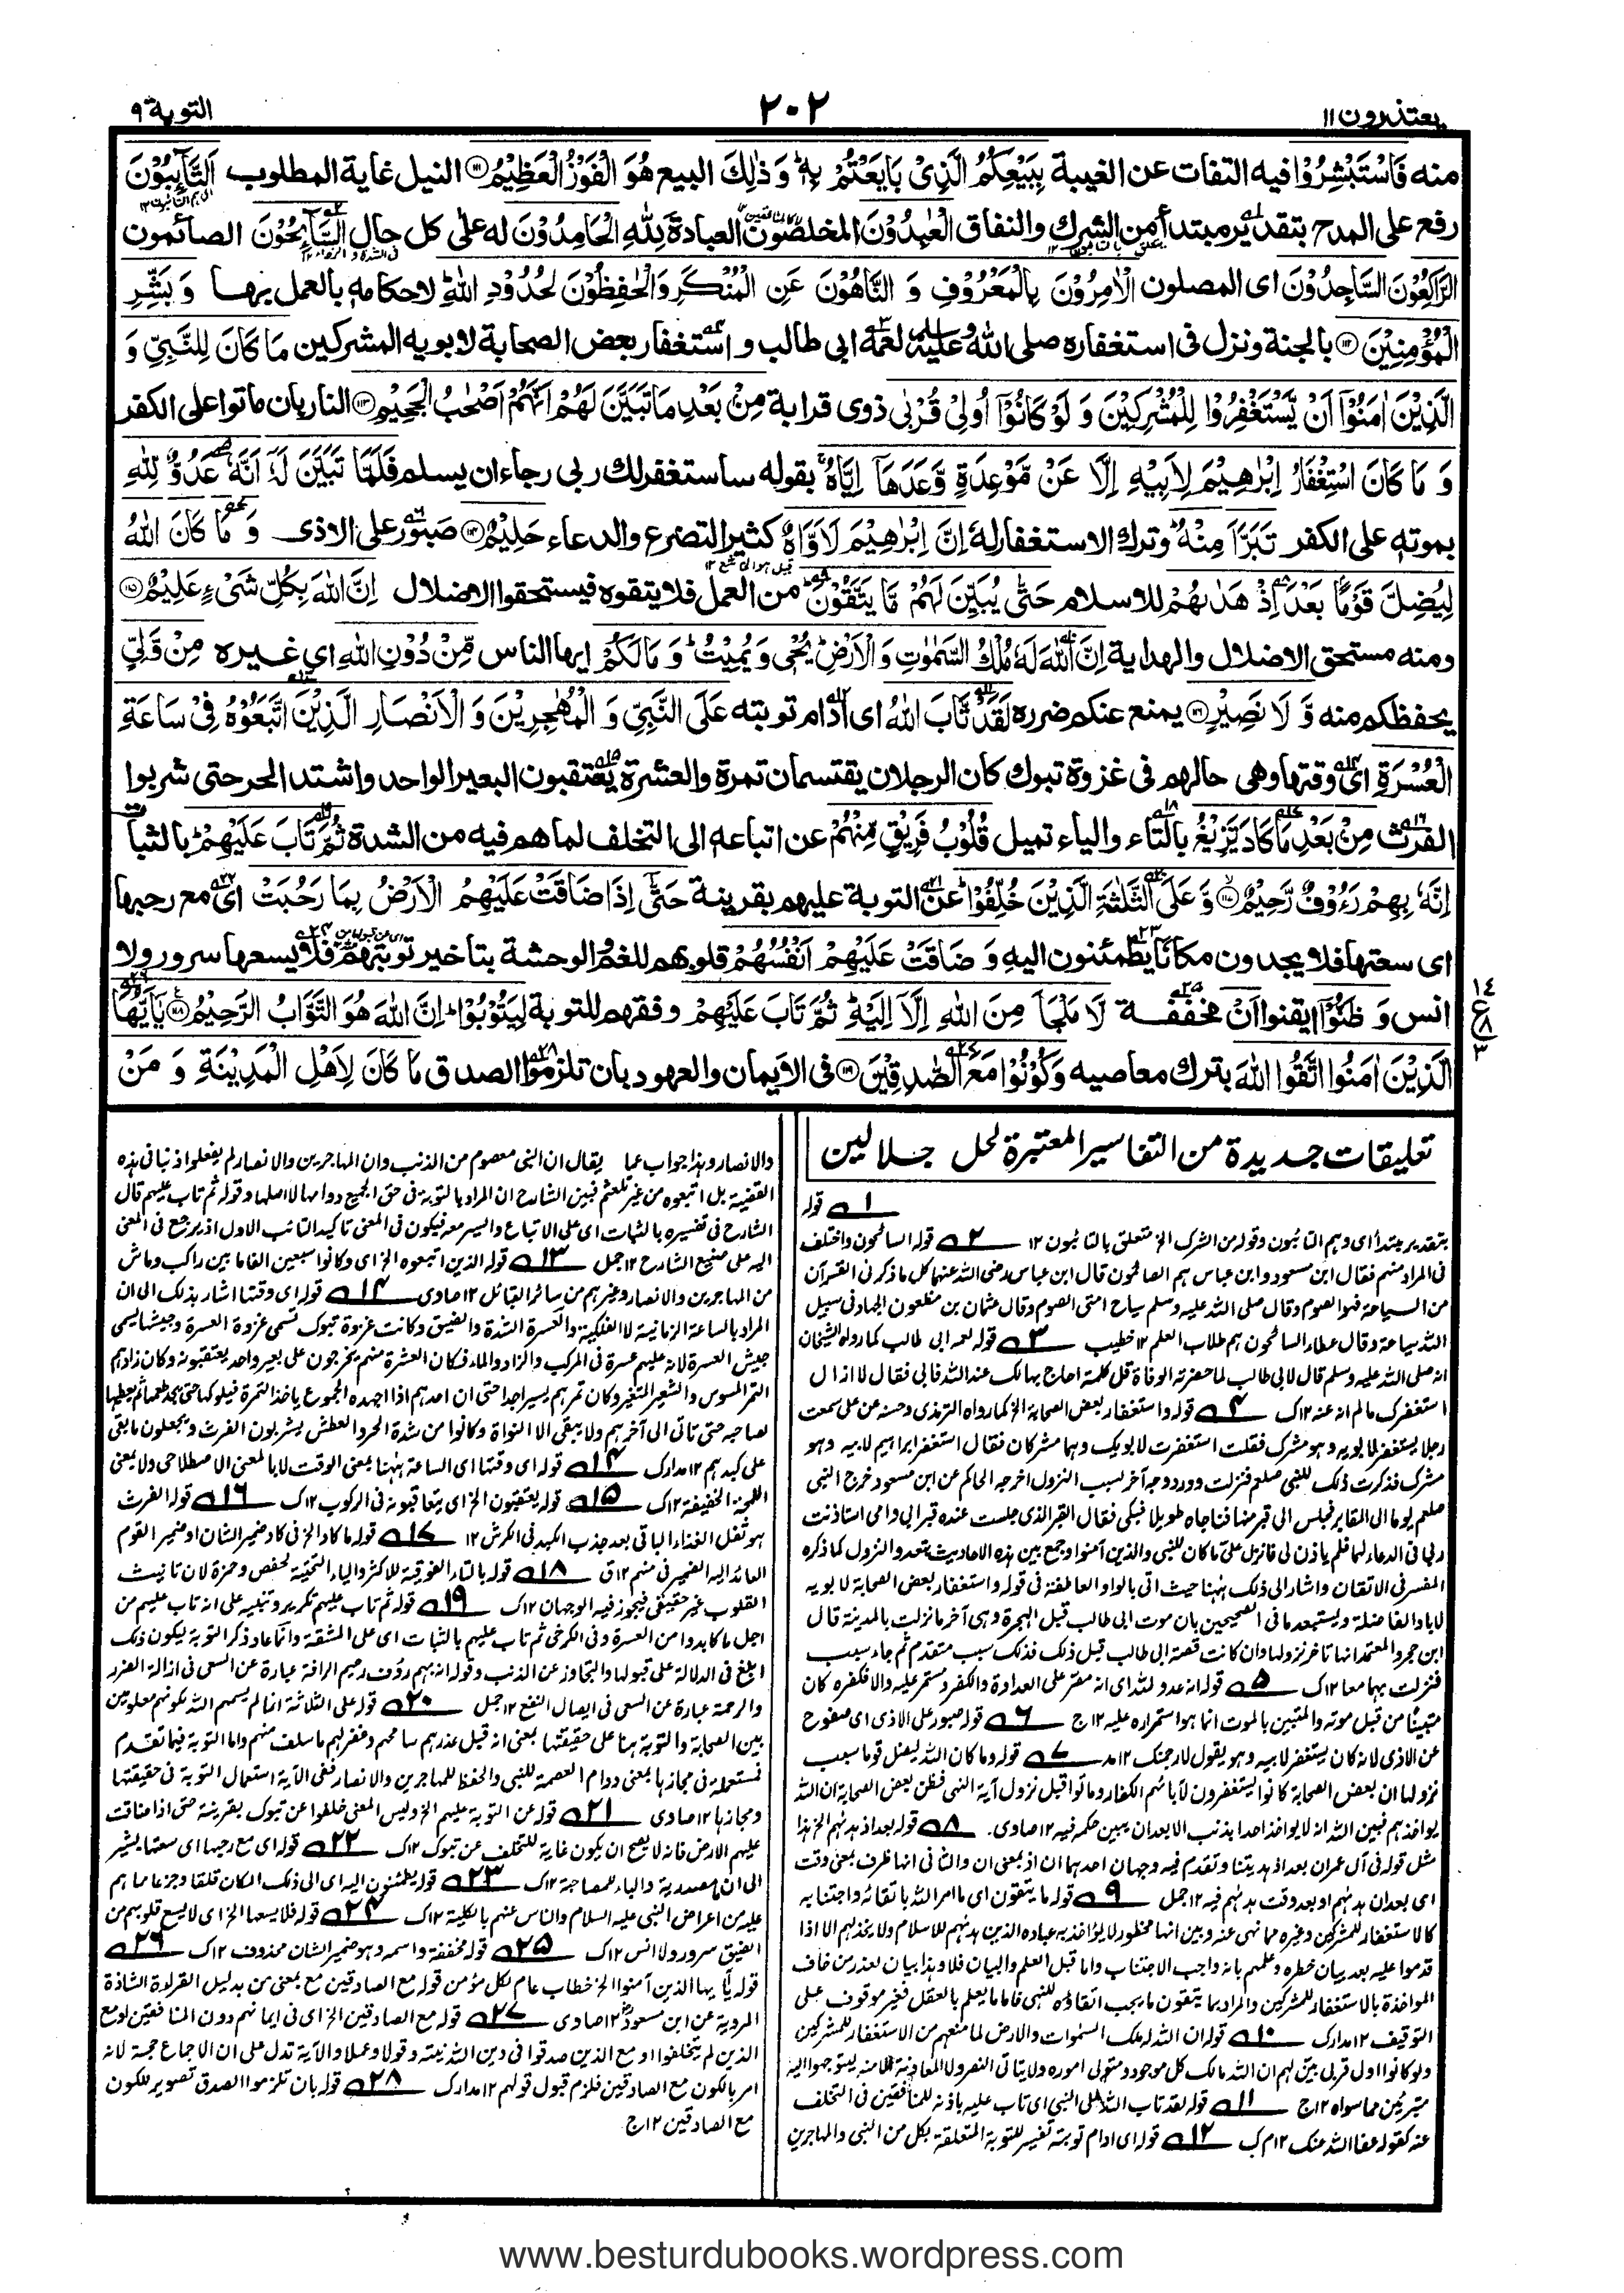 يعتذرون١١
٢٠٢
التوبة٩
منه فَاسْتَبْشِرُوْا فيه التفات عن الغيبة بِبَيْعِكُمُ الَّذِىْ بَايَعْتُمْ بِهٖ وَ ذٰلِكَ البيع هُوَ الْفَوْزُ الْعَظِيْمُ ۝ النيل غاية المطلوب اَلتَّآئِبُوْنَ
رفع على المدح بتقدير مبتدأ من الشرك والنفاق الْعٰبِدُوْنَ المخلصون العبادة لِلّٰهِ الْحَامِدُوْنَ له على كل حال السَّآئِحُوْنَ الصائمون
الرَّاكِعُوْنَ السَّاجِدُوْنَ اى المصلون الْاٰمِرُوْنَ بِالْمَعْرُوْفِ وَ النَّاهُوْنَ عَنِ الْمُنْكَرِ وَالْحٰفِظُوْنَ لِحُدُوْدِ اللّٰهِ لاحكامه بالعمل بها وَ بَشِّرِ
الْمُؤْمِنِيْنَ ۝ بالجنة ونزل فى استغفاره صلى الله عليه وسلم لعمه ابى طالب و استغفار بعض الصحابة لابويه المشركين مَا كَانَ لِلنَّبِىِّ وَ
الَّذِيْنَ اٰمَنُوْٓا اَنْ يَّسْتَغْفِرُوْا لِلْمُشْرِكِيْنَ وَ لَوْ كَانُوْٓا اُولِىْ قُرْبٰى ذوى قرابة مِنْۢ بَعْدِ مَا تَبَيَّنَ لَهُمْ اَنَّهُمْ اَصْحٰبُ الْجَحِيْمِ ۝ النار بان ماتوا على الكفر
وَ مَا كَانَ اسْتِغْفَارُ اِبْرٰهِيْمَ لِاَبِيْهِ اِلَّا عَنْ مَّوْعِدَةٍ وَّعَدَهَآ اِيَّاهُ بقوله ساستغفرلك ربى رجاء ان يسلم فَلَمَّا تَبَيَّنَ لَهٗٓ اَنَّهٗ عَدُوٌّ لِّلّٰهِ
بموته على الكفر تَبَرَّاَ مِنْهُ وترك الاستغفار له اِنَّ اِبْرٰهِيْمَ لَاَوَّاهٌ كثير التضرع والدعاء حَلِيْمٌ ۝ صبور على الاذى وَ مَا كَانَ اللّٰهُ
لِيُضِلَّ قَوْمًۢا بَعْدَ اِذْ هَدٰىهُمْ للاسلام حَتّٰى يُبَيِّنَ لَهُمْ مَّا يَتَّقُوْنَ من العمل فلا يتقوه فيستحقوا الاضلال اِنَّ اللّٰهَ بِكُلِّ شَىْءٍ عَلِيْمٌ ۝
ومنه مستحق الاضلال والهداية اِنَّ اللّٰهَ لَهٗ مُلْكُ السَّمٰوٰتِ وَ الْاَرْضِ يُحْىٖ وَ يُمِيْتُ وَ مَا لَكُمْ ايها الناس مِّنْ دُوْنِ اللّٰهِ اى غيره مِنْ وَّلِىٍّ
يحفظكم منه وَّ لَا نَصِيْرٍ ۝ يمنع عنكم ضرره لَقَدْ تَّابَ اللّٰهُ اى ادام توبته عَلَى النَّبِىِّ وَ الْمُهٰجِرِيْنَ وَ الْاَنْصَارِ الَّذِيْنَ اتَّبَعُوْهُ فِىْ سَاعَةِ
الْعُسْرَةِ اى وقتها وهى حالهم فى غزوة تبوك كان الرجلان يقتسمان تمرة والعشرة يعتقبون البعير الواحد واشتد الحر حتى شربوا
الفرث مِنْۢ بَعْدِ مَا كَادَ يَزِيْغُ بالتاء والياء تميل قُلُوْبُ فَرِيْقٍ مِّنْهُمْ عن اتباعه الى التخلف لما هم فيه من الشدة ثُمَّ تَابَ عَلَيْهِمْ بالثبات
اِنَّهٗ بِهِمْ رَءُوْفٌ رَّحِيْمٌ ۝ وَّ عَلَى الثَّلٰثَةِ الَّذِيْنَ خُلِّفُوْا عن التوبة عليهم بقرينة حَتّٰٓى اِذَا ضَاقَتْ عَلَيْهِمُ الْاَرْضُ بِمَا رَحُبَتْ اى مع رحبها
اى سعتها فلا يجدون مكانا يطمئنون اليه وَ ضَاقَتْ عَلَيْهِمْ اَنْفُسُهُمْ قلوبهم للغم الوحشة بتاخير توبتهم فلا يسعها سرور ولا
انس وَ ظَنُّوْٓا ايقنوا اَنْ مخففة لَّا مَلْجَاَ مِنَ اللّٰهِ اِلَّآ اِلَيْهِ ثُمَّ تَابَ عَلَيْهِمْ وفقهم للتوبة لِيَتُوْبُوْا اِنَّ اللّٰهَ هُوَ التَّوَّابُ الرَّحِيْمُ ۝ يٰٓاَيُّهَا
الَّذِيْنَ اٰمَنُوا اتَّقُوا اللّٰهَ بترك معاصيه وَكُوْنُوْا مَعَ الصّٰدِقِيْنَ ۝ فى الايمان والعهود بان تلزموا الصدق مَا كَانَ لِاَهْلِ الْمَدِيْنَةِ وَ مَنْ
تعليقات جديدة من التفاسير المعتبرة لحل جلالين
١ قوله
بتقدير مبتدأ اى وهم التائبون وقوله من الشرك الخ متعلق بالتائبون ١٢ ٢ قوله السائحون واختلف
فى المراد منهم فقال ابن مسعود وابن عباس هم الصائمون قال ابن عباس رضى الله عنهما كل ما ذكر فى القرآن
من السياحة فهو الصوم وقال صلى الله عليه وسلم سياحة امتى الصوم وقال عثمان بن مظعون الجهاد فى سبيل
الله سياحة وقال عطاء السائحون هم طلاب العلم ١٢ خطيب ٣ قوله لعمه ابى طالب كما رواه الشيخان
انه صلى الله عليه وسلم قال لابى طالب لما حضرته الوفاة قل كلمة احاج بها لك عند الله فابى فقال لا ازال
استغفرلك مالم انه عنه ١٢ك ٤ قوله واستغفار بعض الصحابة الخ كما رواه الترمذى وحسنه عن على سمعت
رجلا يستغفر لابويه وهو مشرك فقلت استغفرت لابويك وهما مشركان فقال استغفر ابراهيم لابيه وهو
مشرك فذكرت ذلك للنبى صلعم فنزلت وورد وجه آخر لسبب النزول اخرجه الحاكم عن ابن مسعود خرج النبى
صلعم يوما الى المقابر فجلس الى قبر منها فناجاه طويلا فبكى فقال القبر الذى جلست عنده قبر امى وانى استاذنت
ربى فى الدعاء لها فلم ياذن لى فانزل على ما كان للنبى والذين آمنوا وجمع بين هذه الاحاديث بتعدد النزول كما ذكره
المفسر فى الاتقان واشار الى ذلك ههنا حيث اتى بالواو العاطفة فى قوله واستغفار بعض الصحابة لابويه
ابن حجر والمعتمد انها تاخر نزولها وان كانت قصة ابى طالب قبل ذلك فذلك سبب متقدم ثم جاء سبب
فنزلت بهما معا ١٢ك ٥ قوله انه عدو لله اى انه مصر على العداوة والكفر ومستمر عليه والا فكفره كان
متبينا من قبل موته والمتبين بالموت انما هو استمراره عليه ١٢ج ٦ قوله صبور على الاذى اى صفوح
عن الاذى لانه كان يستغفر لابيه وهو يقول لارجمنك ١٢مد ٧ قوله وما كان الله ليضل قوما سبب
نزولها ان بعض الصحابة كانوا يستغفرون لآبائهم الكفار وماتوا قبل نزول آية النهى فظن بعض الصحابة ان الله
يواخذهم فبين الله انه لا يواخذ احدا بذنب الا بعد ان يبين حكمه فيه ١٢صاوى. ٨ قوله بعد اذ هدٰهم الخ هذا
مثل قوله فى آل عمران بعد اذ هديتنا وتقدم فيه وجهان احدهما ان اذ بمعنى ان والثانى انها ظرف بمعنى وقت
اى بعد ان هدٰهم او بعد وقت هدٰهم فيه ١٢جمل ٩ قوله ما يتقون اى ما امر الله باتقائه واجتنابه
كالاستغفار للمشركين وغيره مما نهى عنه وبين انها محظور لا يؤاخذ به عباده الذين هدٰهم للاسلام ولا يخذلهم الا اذا
قدموا عليه بعد بيان حظره وعلمهم بانه واجب الاجتناب واما قبل العلم والبيان فلا وهذا بيان لعذر من خاف
المواخذة بالاستغفار للمشركين والمراد بما يتقون ما يجب اتقاؤه للنهى فاما ما يعلم بالعقل فغير موقوف على
التوقيف ١٢مدارك ١٠ قوله ان الله له ملك السموات والارض لما منعهم من الاستغفار للمشركين
ولو كانوا اولى قربى بين لهم ان الله مالك كل موجود ومتولى اموره ولا يتاتى النصر ولا المعاونة الا منه ليتوجهوا اليه
متبرئين مما سواه ١٢ج ١١ قوله لقد تاب الله على النبى اى تاب عليه باذنه للمنافقين فى التخلف
عنه كقوله عفا الله عنك ١٢م ك ١٢ قوله اى ادام توبته تفسير للتوبة المتعلقة بكل من النبى والمهاجرين
والانصار وهذا جواب عما يقال ان النبى معصوم من الذنب وان المهاجرين والانصار لم يفعلوا ذنبا فى هذه
القضية بل اتبعوه من غير تلعثم فبين الشارح ان المراد بالتوبة فى حق الجميع دوامها لا اصلها وقوله ثم تاب عليهم قال
الشارح فى تفسيره بالثبات اى على الاتباع والسير معه فيكون فى المعنى تاكيد التائب الاول اذ يرجع فى المعنى
اليه على صنيع الشارح ١٢جمل ١٣ قوله الذين اتبعوه الخ اى وكانوا سبعين الفا ما بين راكب وماش
من المهاجرين والانصار وغيرهم من سائر القبائل ١٢صاوى ١٤ قوله اى وقتها اشار بذلك الى ان
المراد بالساعة الزمانية لا الفلكية والعسرة الشدة والضيق وكانت غزوة تبوك تسمى غزوة العسرة وجيشها يسمى
جيش العسرة لانه عليهم عسرة فى المركب والزاد والماء فكان العشرة منهم يخرجون على بعير واحد يعتقبونه وكان زادهم
التمر المسوس والشعير المتغير وكان تمرهم يسيرا جدا حتى ان احدهم اذا اجهده الجوع ياخذ التمرة فيلوكها حتى يجد طعمها ثم يعطيها
لصاحبه حتى تاتى الى آخرهم ولا يبقى الا النواة وكانوا من شدة الحر والعطش يشربون الفرث ويجعلون ما بقى
على كبدهم ١٢مدارك ١٤ قوله اى وقتها اى الساعة ههنا بمعنى الوقت لا بالمعنى الاصطلاحى ولا بمعنى
اللمحة الخفيفة ١٢ك ١٥ قوله يعتقبون الخ اى يتعاقبونه فى الركوب ١٢ك ١٦ قوله الفرث
هو ثقل الغذاء الباقى بعد جذب الكبد فى الكرش ١٢ ١٧ قوله ما كاد الخ فى كاد ضمير الشان او ضمير القوم
العائد اليه الضمير فى منهم ١٢ق ١٨ قوله بالتاء الفوقية للاكثر والياء التحتية لحفص وحمزة لان تانيث
القلوب غير حقيقى فيجوز فيه الوجهان ١٢ك ١٩ قوله ثم تاب عليهم تكرير وتنبيه على انه تاب عليهم من
اجل ما كابدوا من العسرة وفى الكرخى ثم تاب عليهم بالثبات اى على المشقة وانما عاد ذكر التوبة ليكون ذلك
ابلغ فى الدلالة على قبولها والتجاوز عن الذنب وقوله انه بهم رؤف رحيم الرافة عبارة عن السعى فى ازالة الضرر
والرحمة عبارة عن السعى فى ايصال النفع ١٢جمل ٢٠ قوله على الثلاثة انما لم يسمهم الله لكونهم معلومين
بين الصحابة والتوبة هنا على حقيقتها بمعنى انه قبل عذرهم سامحهم وغفر لهم ما سلف منهم واما التوبة فيما تقدم
فمستعملة فى مجازها بمعنى دوام العصمة للنبى والحفظ للمهاجرين والانصار ففى الآية استعمال التوبة فى حقيقتها
ومجازها ١٢صاوى ٢١ قوله عن التوبة عليهم الخ وليس المعنى خلفوا عن تبوك بقرينة حتى اذا ضاقت
عليهم الارض فانه لا يصح ان يكون غاية للتخلف عن تبوك ١٢ك ٢٢ قوله اى مع رحبها اى سعتها يشير
الى ان ما مصدرية والباء للمصاحبة ١٢ك ٢٣ قوله يطمئنون اليه اى الى ذلك المكان قلقا وجزعا مما هم
عليه من اعراض النبى عليه السلام والناس عنهم بالكلية ١٢ك ٢٤ قوله فلا يسعها الخ اى لا يسع قلوبهم من
الضيق سرور ولا انس ١٢ك ٢٥ قوله مخففة واسمه وهو ضمير الشان محذوف ١٢ك ٢٦
قوله يا ايها الذين آمنوا الخ خطاب عام لكل مؤمن قوله مع الصادقين مع بمعنى من بدليل القراءة الشاذة
المروية عن ابن مسعود ١٢صاوى ٢٧ قوله مع الصادقين الخ اى فى ايمانهم دون المنافقين او مع
الذين لم يتخلفوا او مع الذين صدقوا فى دين الله نيته وقولا وعملا والآية تدل على ان الاجماع حجة لانه
امر بالكون مع الصادقين فلزم قبول قولهم ١٢مدارك ٢٨ قوله بان تلزموا الصدق تصوير للكون
مع الصادقين ١٢ج
www.besturdubooks.wordpress.com